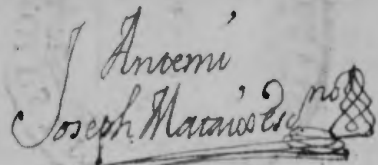 Antemi
Joseph Mataiós Es.no